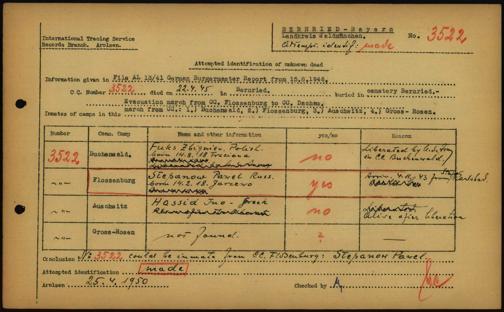 International Tracing Service
Records Branch. Arolsen.
BERNRIED-Bayern
Landkreis Waldmünchen.
Attempt. identif: made
No. 3522
Attempted identification of unknown dead
Information given in File AL 12/41 German Burgermaster Report from
C.C. Number 3522 died 22.4.45 in Bernried. buried in cemetary Bernried.
Evacuation march from CC. Flossenburg to CC. Dachau.
Inmates of camps in this march from CC.: 1,) Buchenwald, 2,) Flossenburg, 3,) Auschwitz, 4,) Gross-Rosen.
Number Conc. Camp Name and other information yes/no Reason
3522 Buchenwald. Fuks Zbigniew. Polish.
born 14.8.18
no
Liberated by
in CC. Buchenwald
-"- Flossenburg Stepanow Pavel Russ.
born 14.2.18.
yes
-"- Auschwitz Hassid Ino - Greek
no
Alive after liberation
-"- Gross-Rosen not found. ? —
Conclusion No 3522 could be inmate from CC. Flossenburg: Stepanow Pavel.
Attempted identification made
Arolsen 25.4.1950 Checked by